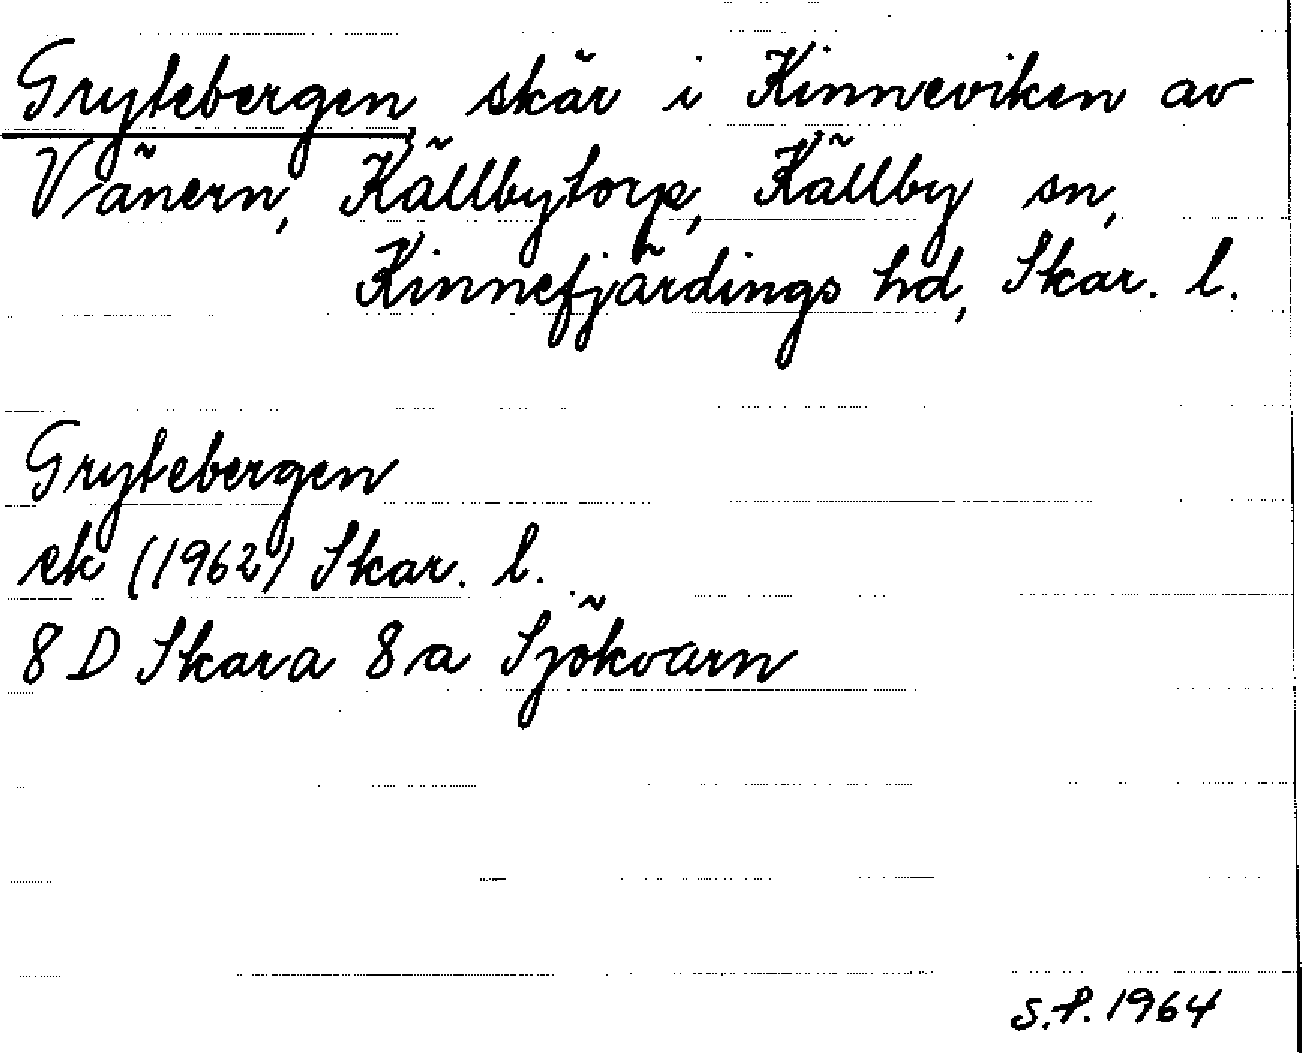 Grytebergen, skär i Kinneviken av
Vänern, Källbytorp, Källby sn,
Kinnefjärdings hd, Skar. l.
Grytebergen
ek (1962) Skar. l.
8 D Skara 8 a Sjökvarn
S.P. 1964